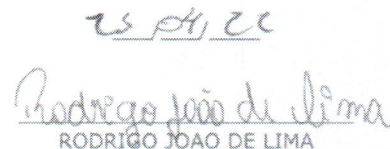 25/04/22
Rodrigo João de Lima
RODRIGO JOAO DE LIMA